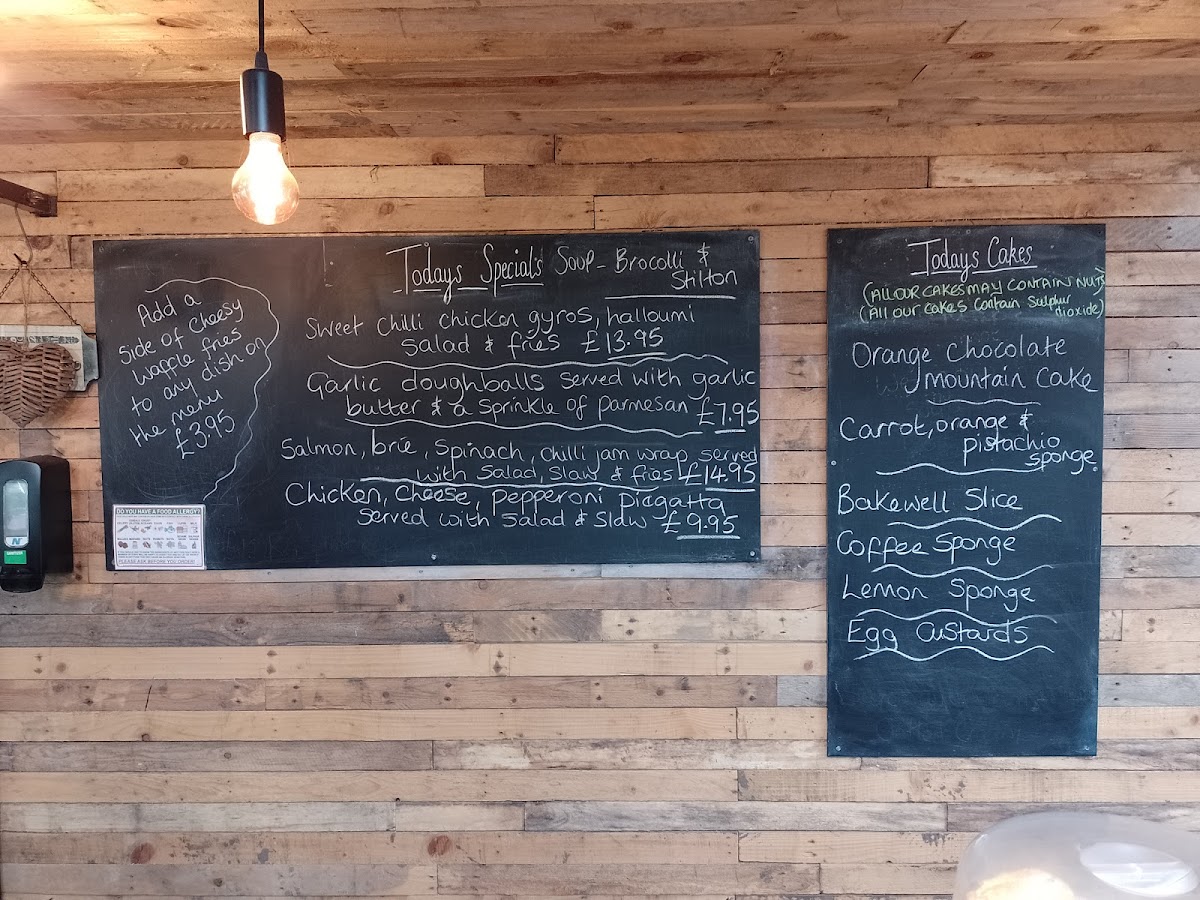 Add a
side of Cheesy
waffle fries
to any dish on
the menu
£3.95
Todays Special's Soup - Brocolli &
Stilton
Sweet chilli chicken gyros, halloumi
salad & fries £13.95
Garlic doughballs served with garlic
butter & a sprinkle of parmesan £7.95
Salmon, brie, spinach, chilli jam wrap served
with salad, slaw & fries £14.95
Chicken, cheese, pepperoni piagatta
served with salad & slaw £9.95
DO YOU HAVE A FOOD ALLERGY?
PLEASE ASK BEFORE YOU ORDER!
Todays Cakes
(ALL OUR CAKES MAY CONTAIN NUTS)
(All our cakes contain Sulphur
dioxide)
Orange Chocolate
mountain cake
Carrot, orange &
pistachio
sponge
Bakewell Slice
Coffee Sponge
Lemon Sponge
Egg Custards